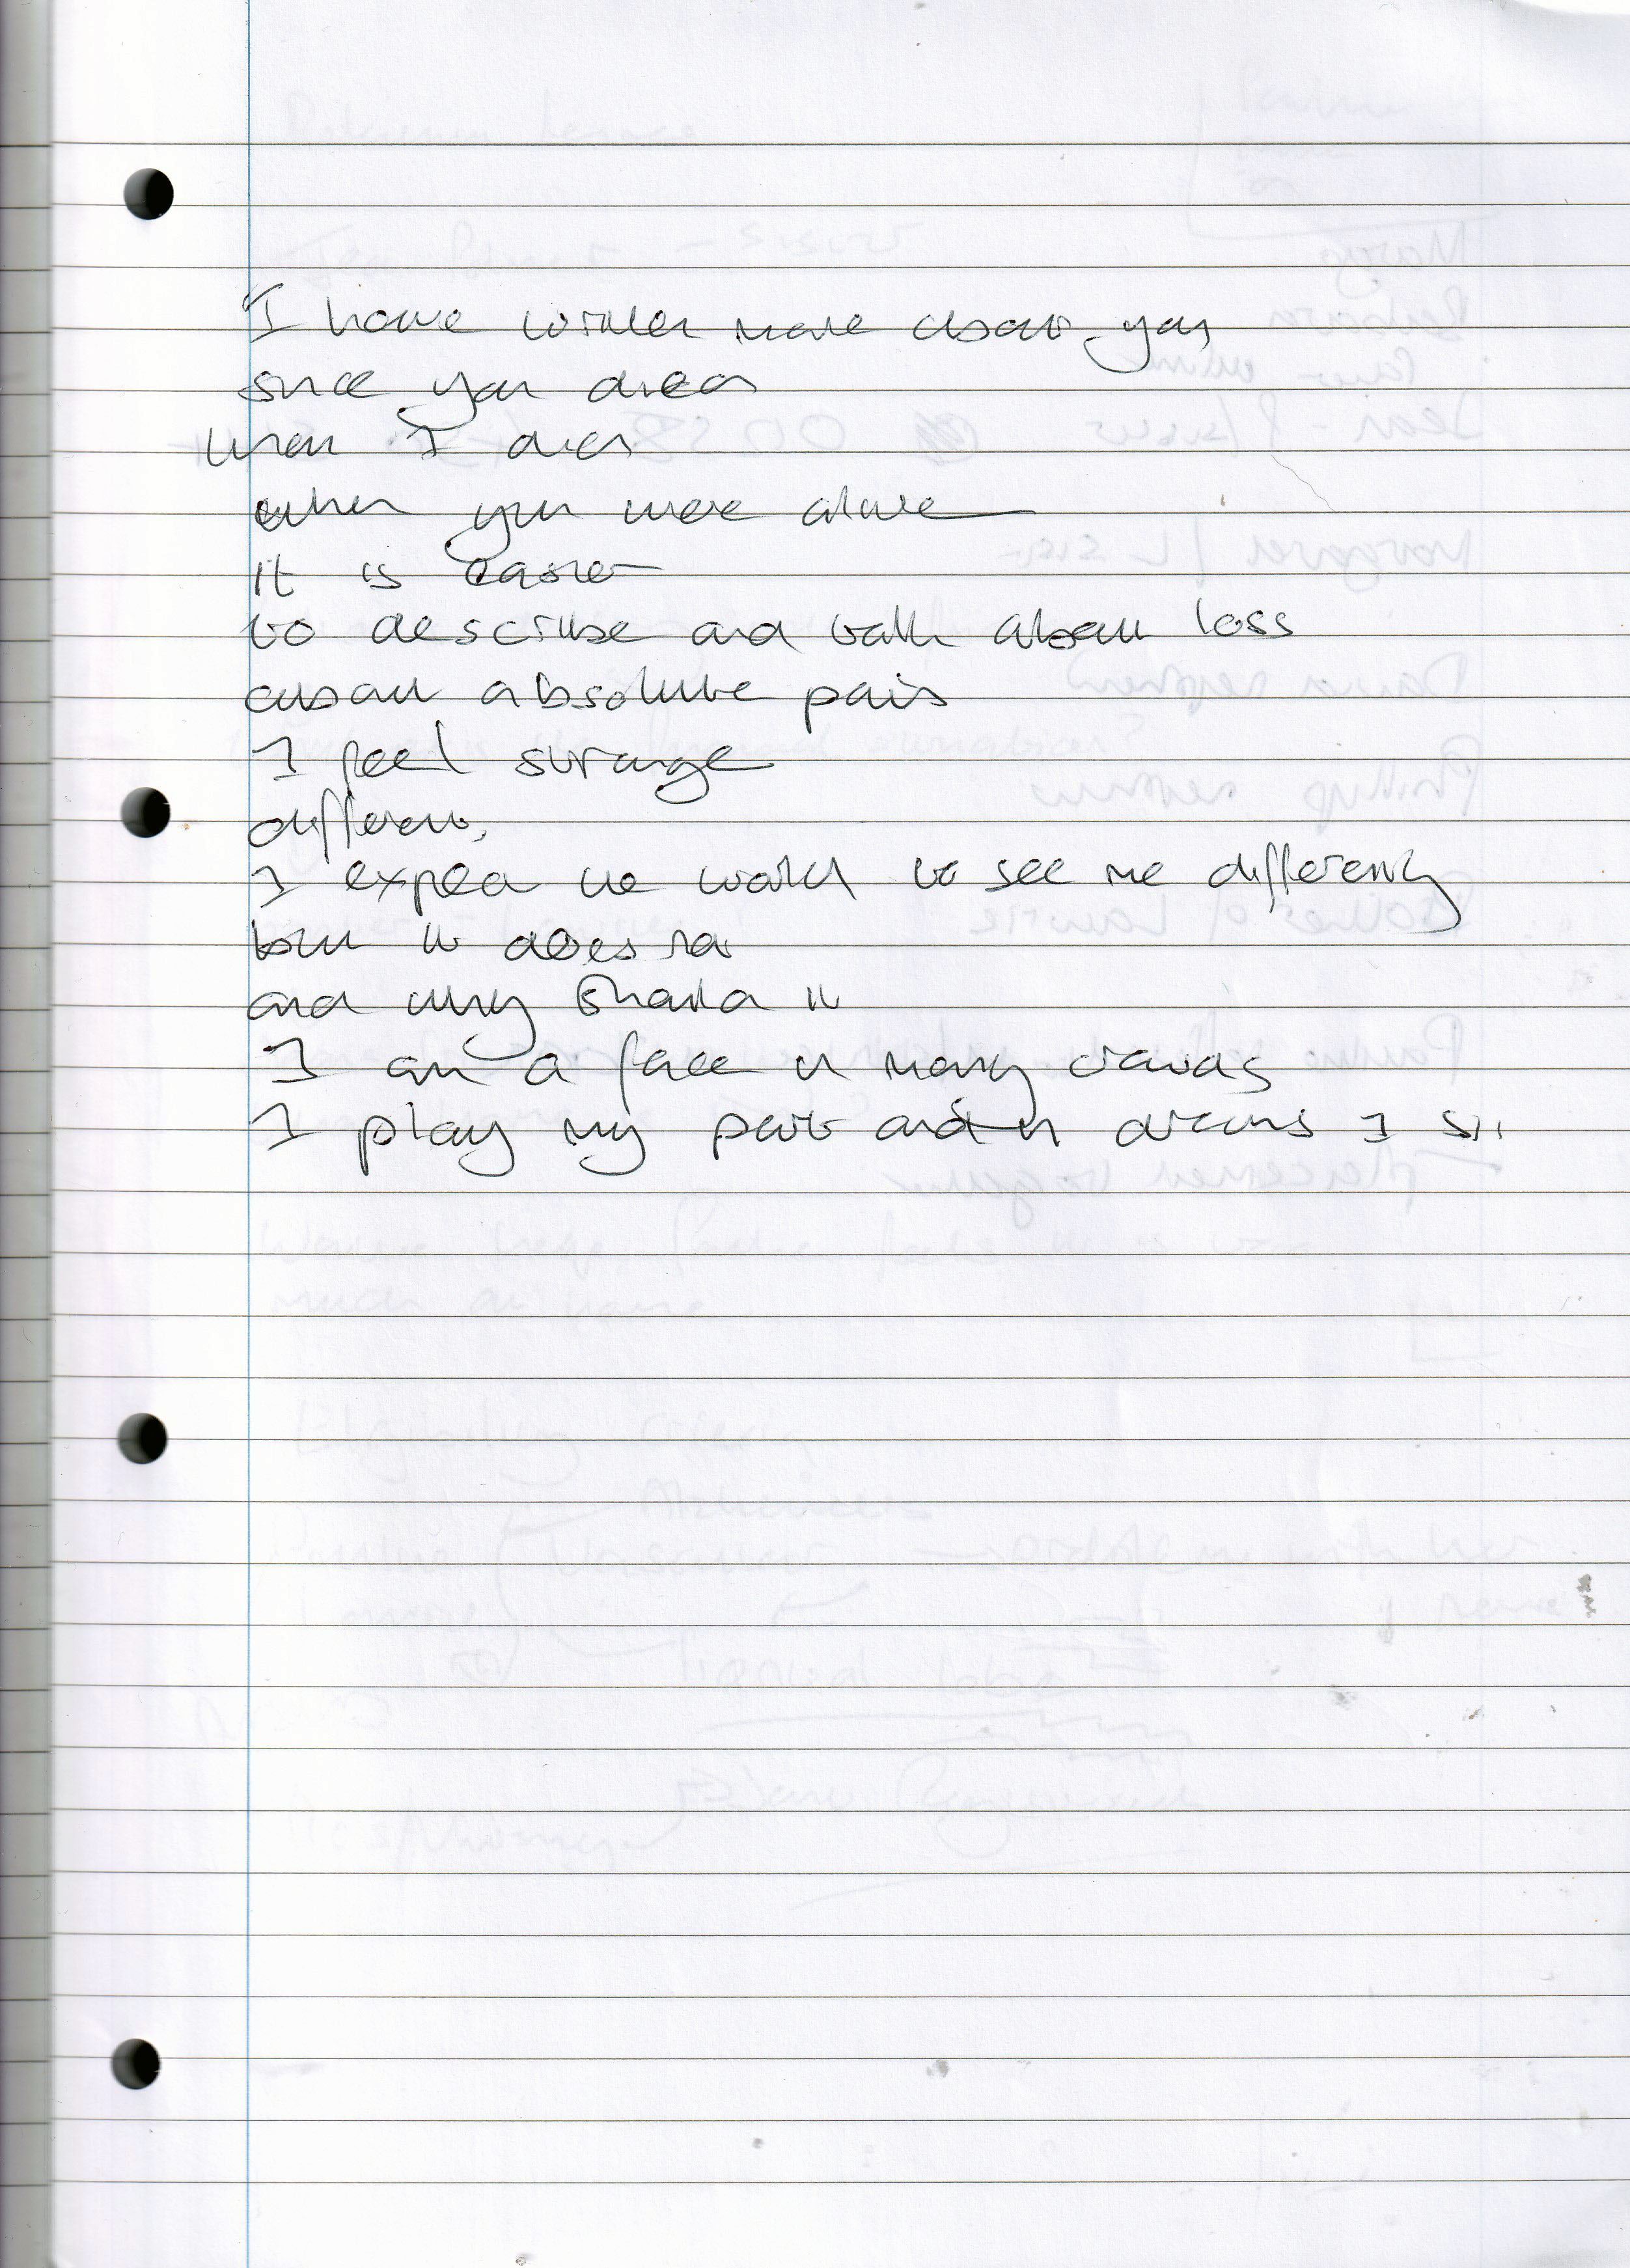 I have written more about you
since you died
than I did
when you were alive
it is easier
to describe and talk about loss
about absolute pain
I feel strange
different,
I expect the world to see me differently
but it does not
and why should it
I am a face in many crowds
I play my part and in dreams I